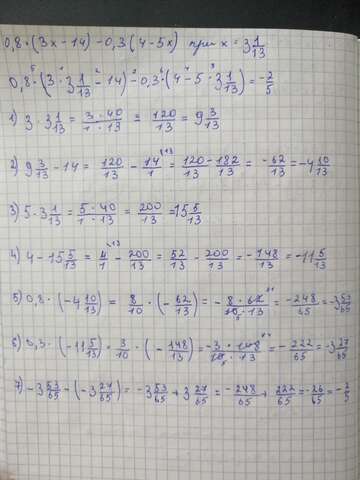 0,8·(3x-14)-0,3(4-5x) при x=3 1/13
0,8·(3·3 1/13-14)-0,3·(4-5·3 1/13)=-2/5
1) 3·3 1/13=3·40/1·13=120/13=9 3/13
2) 9 3/13-14=120/13-14/1=120-182/13=-62/13=-4 10/13
3) 5·3 1/13=5·40/1·13=200/13=15 5/13
4) 4-15 5/13=4/1-200/13=52/13-200/13=-148/13=-11 5/13
5) 0,8·(-4 10/13)=8/10·(-62/13)=-8·62/10·13=-248/65=-3 53/65
6) 0,3·(-11 5/13)=3/10·(-148/13)=-3·148/10·13=-222/65=-3 27/65
7) -3 53/65-(-3 27/65)=-3 53/65+3 27/65=-248/65+222/65=-26/65=-2/5